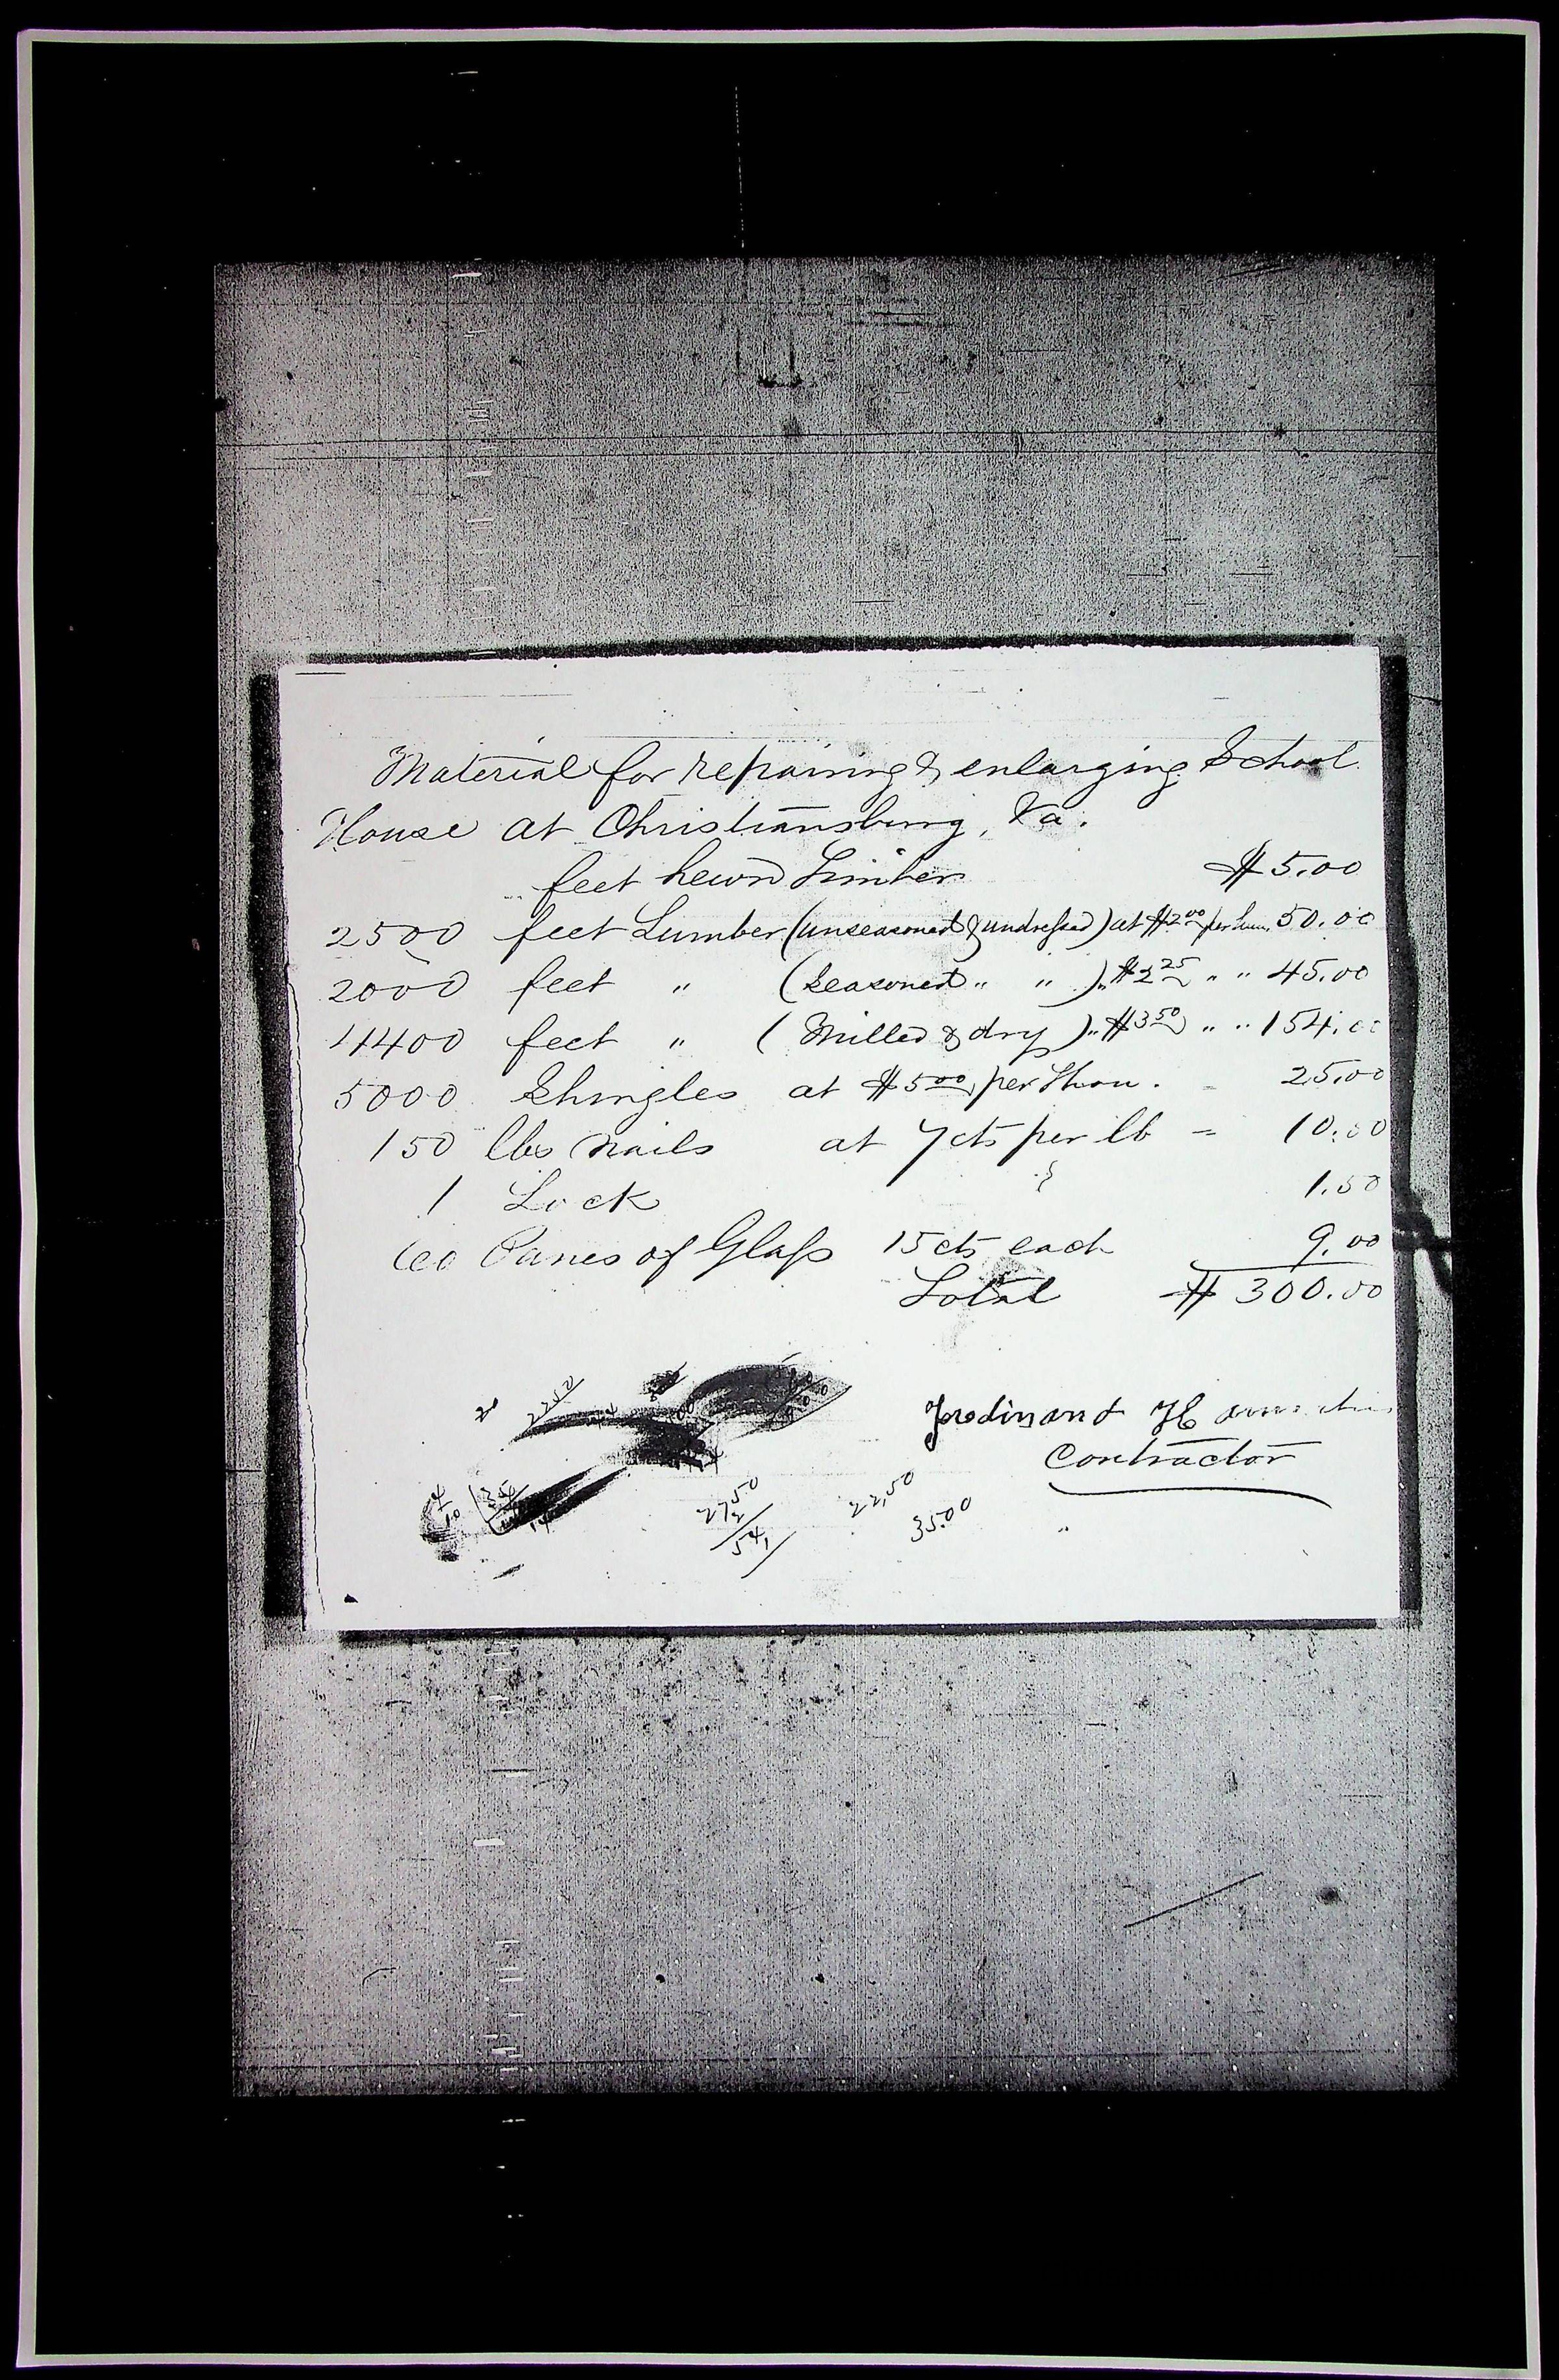 Material for repairing & enlarging School
House at Christiansburg, Va.
feet hewn Timber $5.00
2500 feet Lumber (unseasoned & undressed) at $2.00 per hun. 50.00
2000 feet " (seasoned " " ) " $2.25 " " 45.00
4400 feet " (Milled & dry) " $3.50 " " 154.00
5000 Shingles at $5.00 per Thou. - 25.00
150 lbs Nails at 7 cts per lb = 10.50
1 Lock 1.50
60 Panes of Glass 15 cts each 9.00
Total $300.00
Ferdinand
Contractor
27.50
2
54,
22,50
35.00